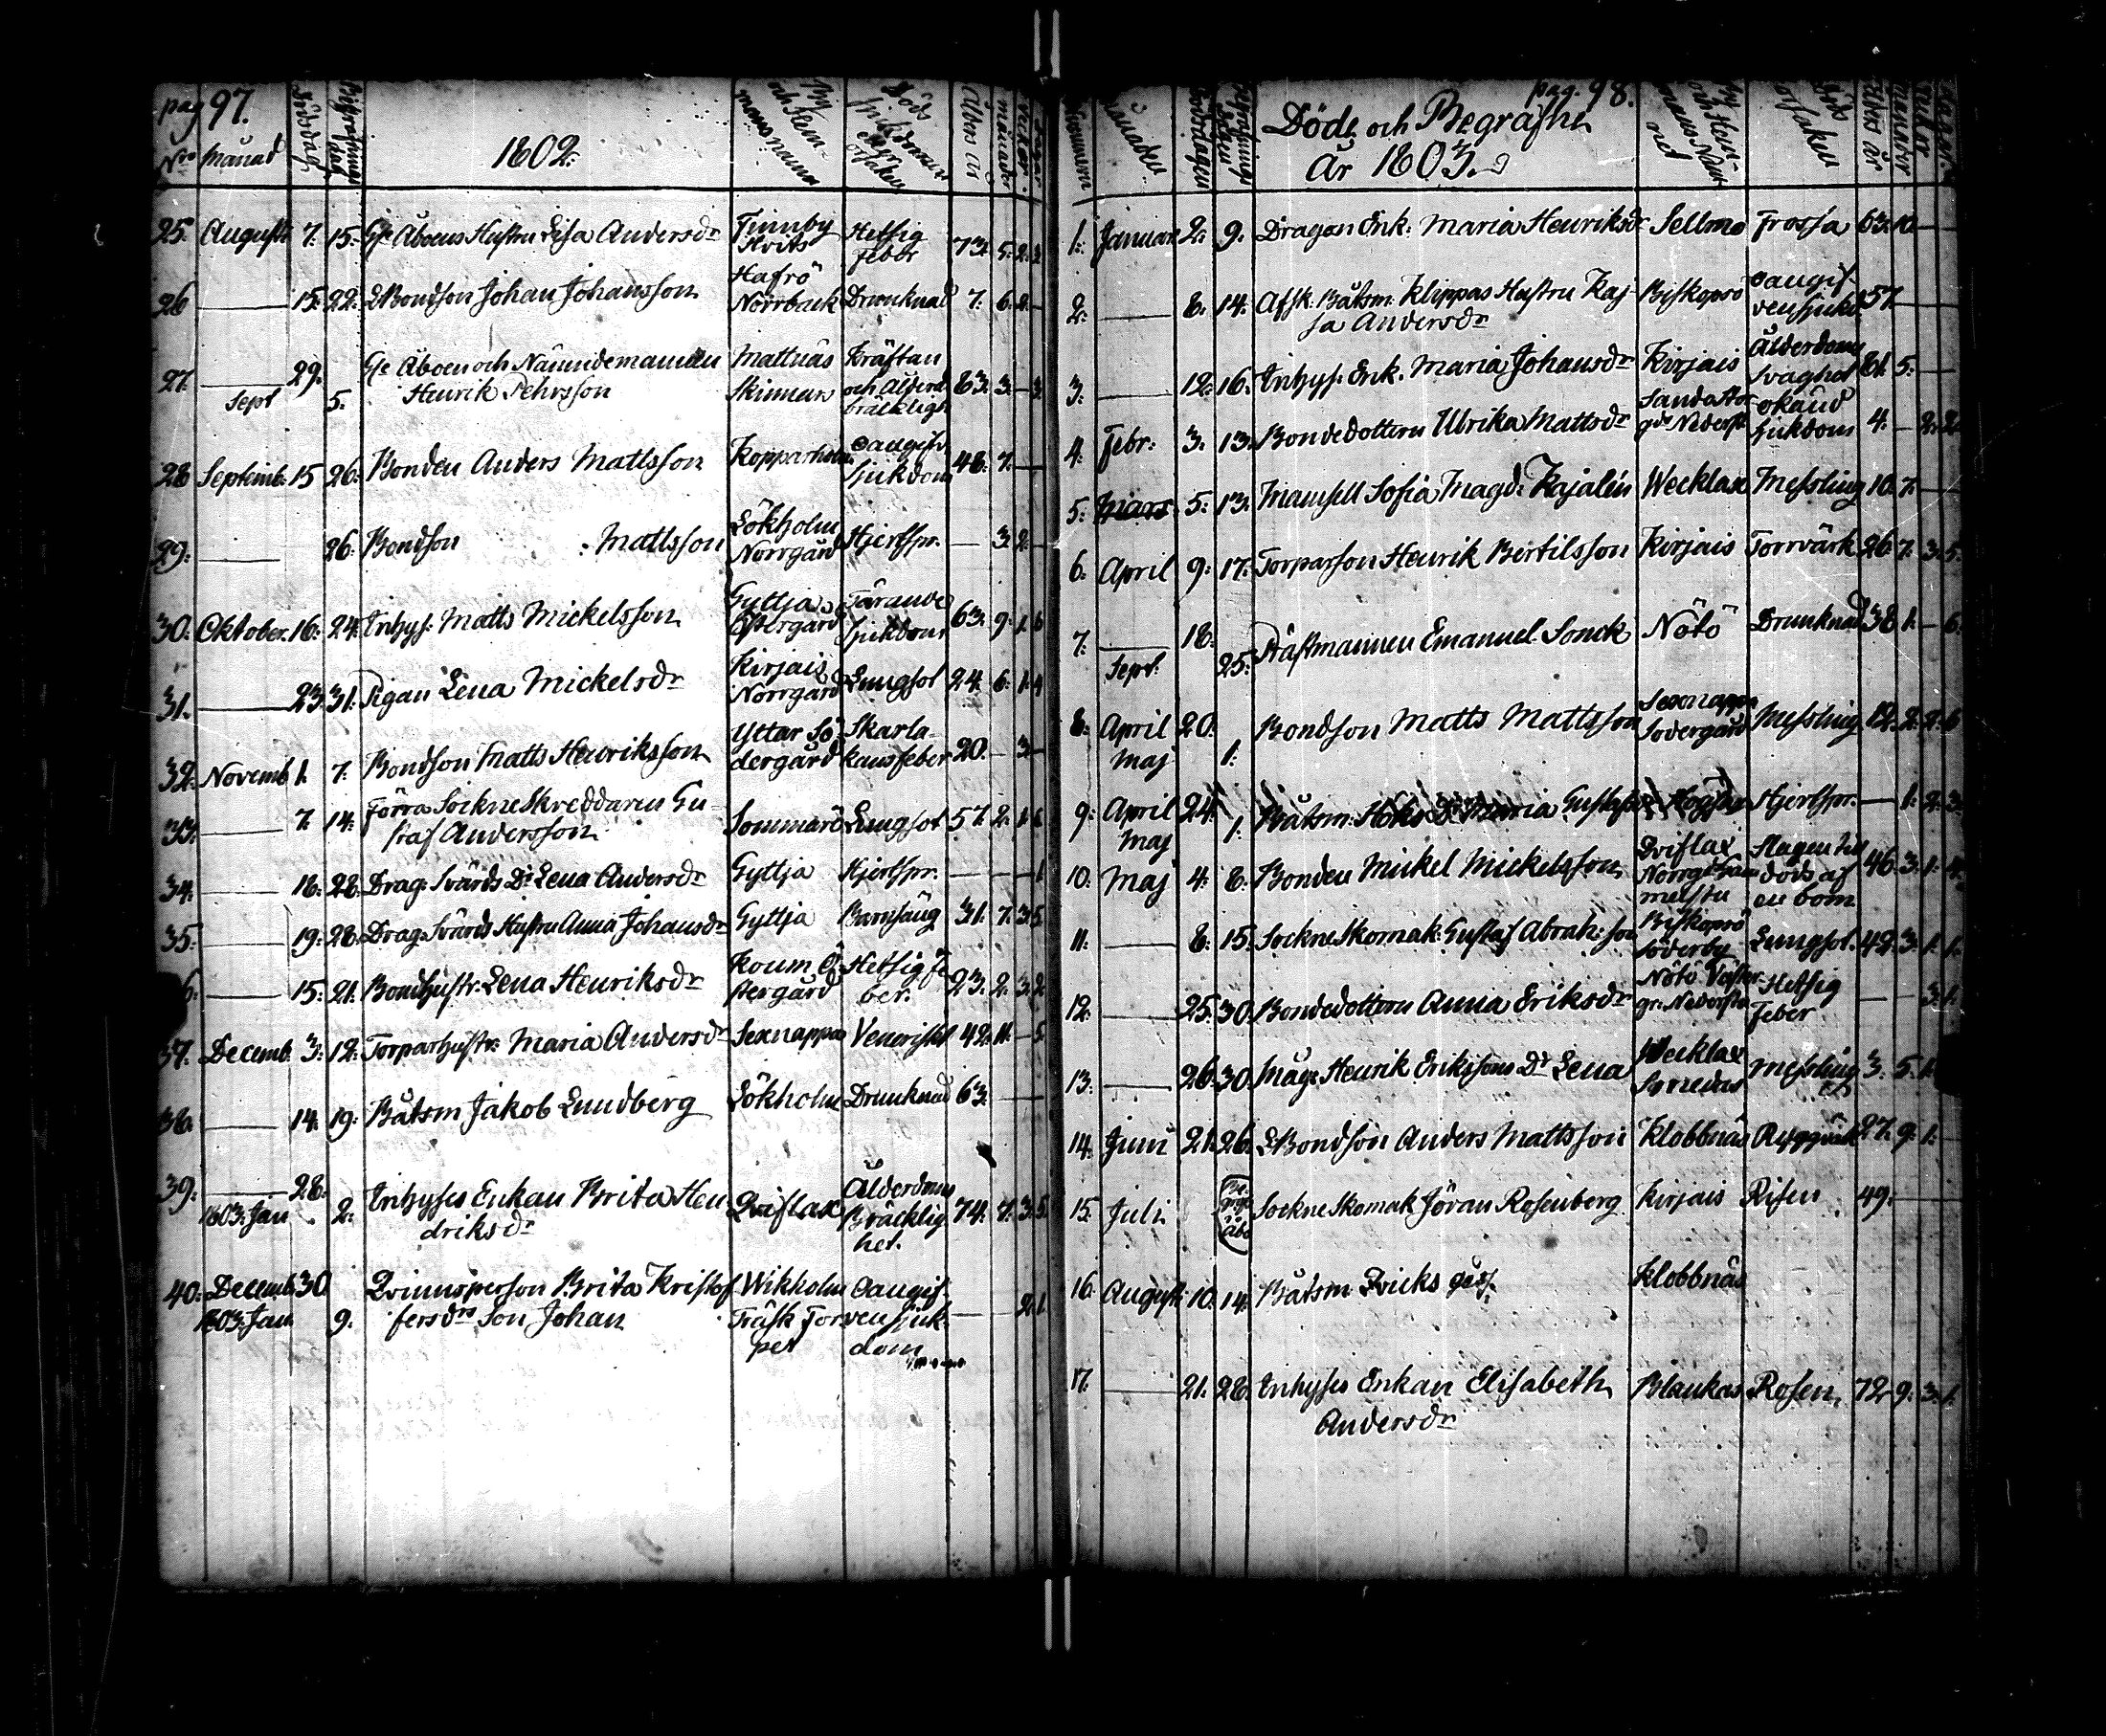 pag 97.
No Månad Dödsdag Begrafnings dag 1802. By och Hemmans namn Döds sjukdomen eller orsaken Ålders år månader veckor dagar
25. Augusti 7. 15. Gle Åboens Hustru Lisa Andersdr Finnby Hvits Hetsig Feber 73. 5. 2. 2
26 — 15. 22. LBondson Johan Johansson Hafrö Norrback Drunknad 7. 6. 2. —
27. — 29. Gle Åboen och Nämndemannen Mattnäs Kräftan
Sept 5. Henrik Pehrsson Skinnars och Ålderd. bräcklight 83. 3. — 3
28 Septemb. 15 26. Bonden Anders Mattsson Kopparholm oangifv. sjukdom 48. 7. —
29. — 26. Bondson : Mattsson Lökholm Norrgård Hjertspr. — 3. 2. —
30. Oktober. 16. 24. Inhys. Matts Mickelsson Gyttja Östergård Tärande sjukdom 63. 9. 1. 6
31. — 23. 31. Pigan Lena Mickelsdr Kirjais Norrgård Lungsot 24. 6. 1. 4
32. Novemb 1. 7. Bondson Matts Henriksson Yttar Södergård Skarlakansfeber 20. — 3 —
33. — 7. 14. Förra Sockne Skreddaren Gu-
staf Andersson Sommarö Lungsot 57. 2. 1. 6
34. — 18. 28. Drag. Svärds Dr Lena Andersdr Gyttja Hjertspr. — — — 1
35. — 19. 28. Drag. Svärds Hustru Anna Johansdr Gyttja Barnsäng 31. 7. 3. 5
6. — 15. 21. Bondhustr. Lena Henriksdr Roum Östergård Hetsig Feber. 23. 2. 3. 2
37. Decemb. 3. 12. Torparhustr. Maria Andersdr Sexnappa Venerisk 42. 11. — 5
38. — 14. 19. Båtsm. Jakob Lundberg Lökholm Drunknad 63. — —
39. — 28. Inhyses Enkan Brita Hen-
1803. Jan 2. driksdr Qviflax Ålderdoms Bräcklighet. 74. 7. 3. 5
40. Decemb 30 Qvinnsperson Brita Kristof-
1803. Jan 9. fersdrs Son Johan Wikholm Träsk Torpet Oangifven sjukdom — 2. 1.
pag. 98.
Döde och Begrafne
År 1803.
Nummern Månaden Dödsdagen Begrafnings dagen By och Hemmans Namnet Döds orsaken Ålders år månader veckor dagar
1. Januari 2. 9. Dragon Enk: Maria Henriksdr Sellmo Frossa 63. 10. —
2. — 8. 14. Afsk. Båtsm. Klippas Hustru Kaj-
sa Andersdr Biskopsö oangifven sjukd. 57. —
3. — 12. 16. Inhys. Enk. Maria Johansdr Kirjais Ålderdoms Svaghet 81. 5. —
4. Febr. 3. 13. Bondedottren Ulrika Mattsdr okänd sjukdom 4. — 2. 2
5. Mars 5. 13. Mamsell Sofia Magd: Kajalén Wecklax Messling 10. 7. —
6. April 9. 17. Torparson Henrik Bertilsson Kirjais Torrvärk 26. 7. 3. 5.
7. — 18. Rästmannen Emanuel Sonck Nötö Drunknad 38 1. — 6.
Sept. 25.
8. April 20. Bondson Matts Mattsson Sexnappa Södergård Messling. 12. 2. 2. 6
Maj 1.
9. April 24. Båtsm. Dr Maria Hjertspr. — 1. 2. 3.
Maj 1.
10. Maj 4. 8. Bonden Mickel Mickelsson Qviflax Norrg. Slagen till döds af en bom 46. 3. 1. 4.
11. — 8. 15. Sockne Skomak: Gustaf Abrah:son Biskopsö Söderby Lungsot. 42. 3. 1. 1.
12. — 25. 30. Bondedottren Anna Eriksdr Nötö Väster gr. Nedersta Hetsig Feber — — 3. 1.
13. — 26. 30. Måg. Henrik Erikssons Dr Lena Wecklax Messling 3. 5. 1.
14. Juni 21. 26. LBondson Anders Mattsson Klobbnäs Ryggvärk 27. 9. 1.
15. Juli Begr. i Åbo Sockne Skomak Jöran Rosenberg Kirjais Risen 49.
16. August. 10. 14. Båtsm Qvicks Klobbnäs
17. — 21. 28. Inhyses Enkan Elisabeth Blankas Rosen. 72 9. 3. 1.
Andersdr